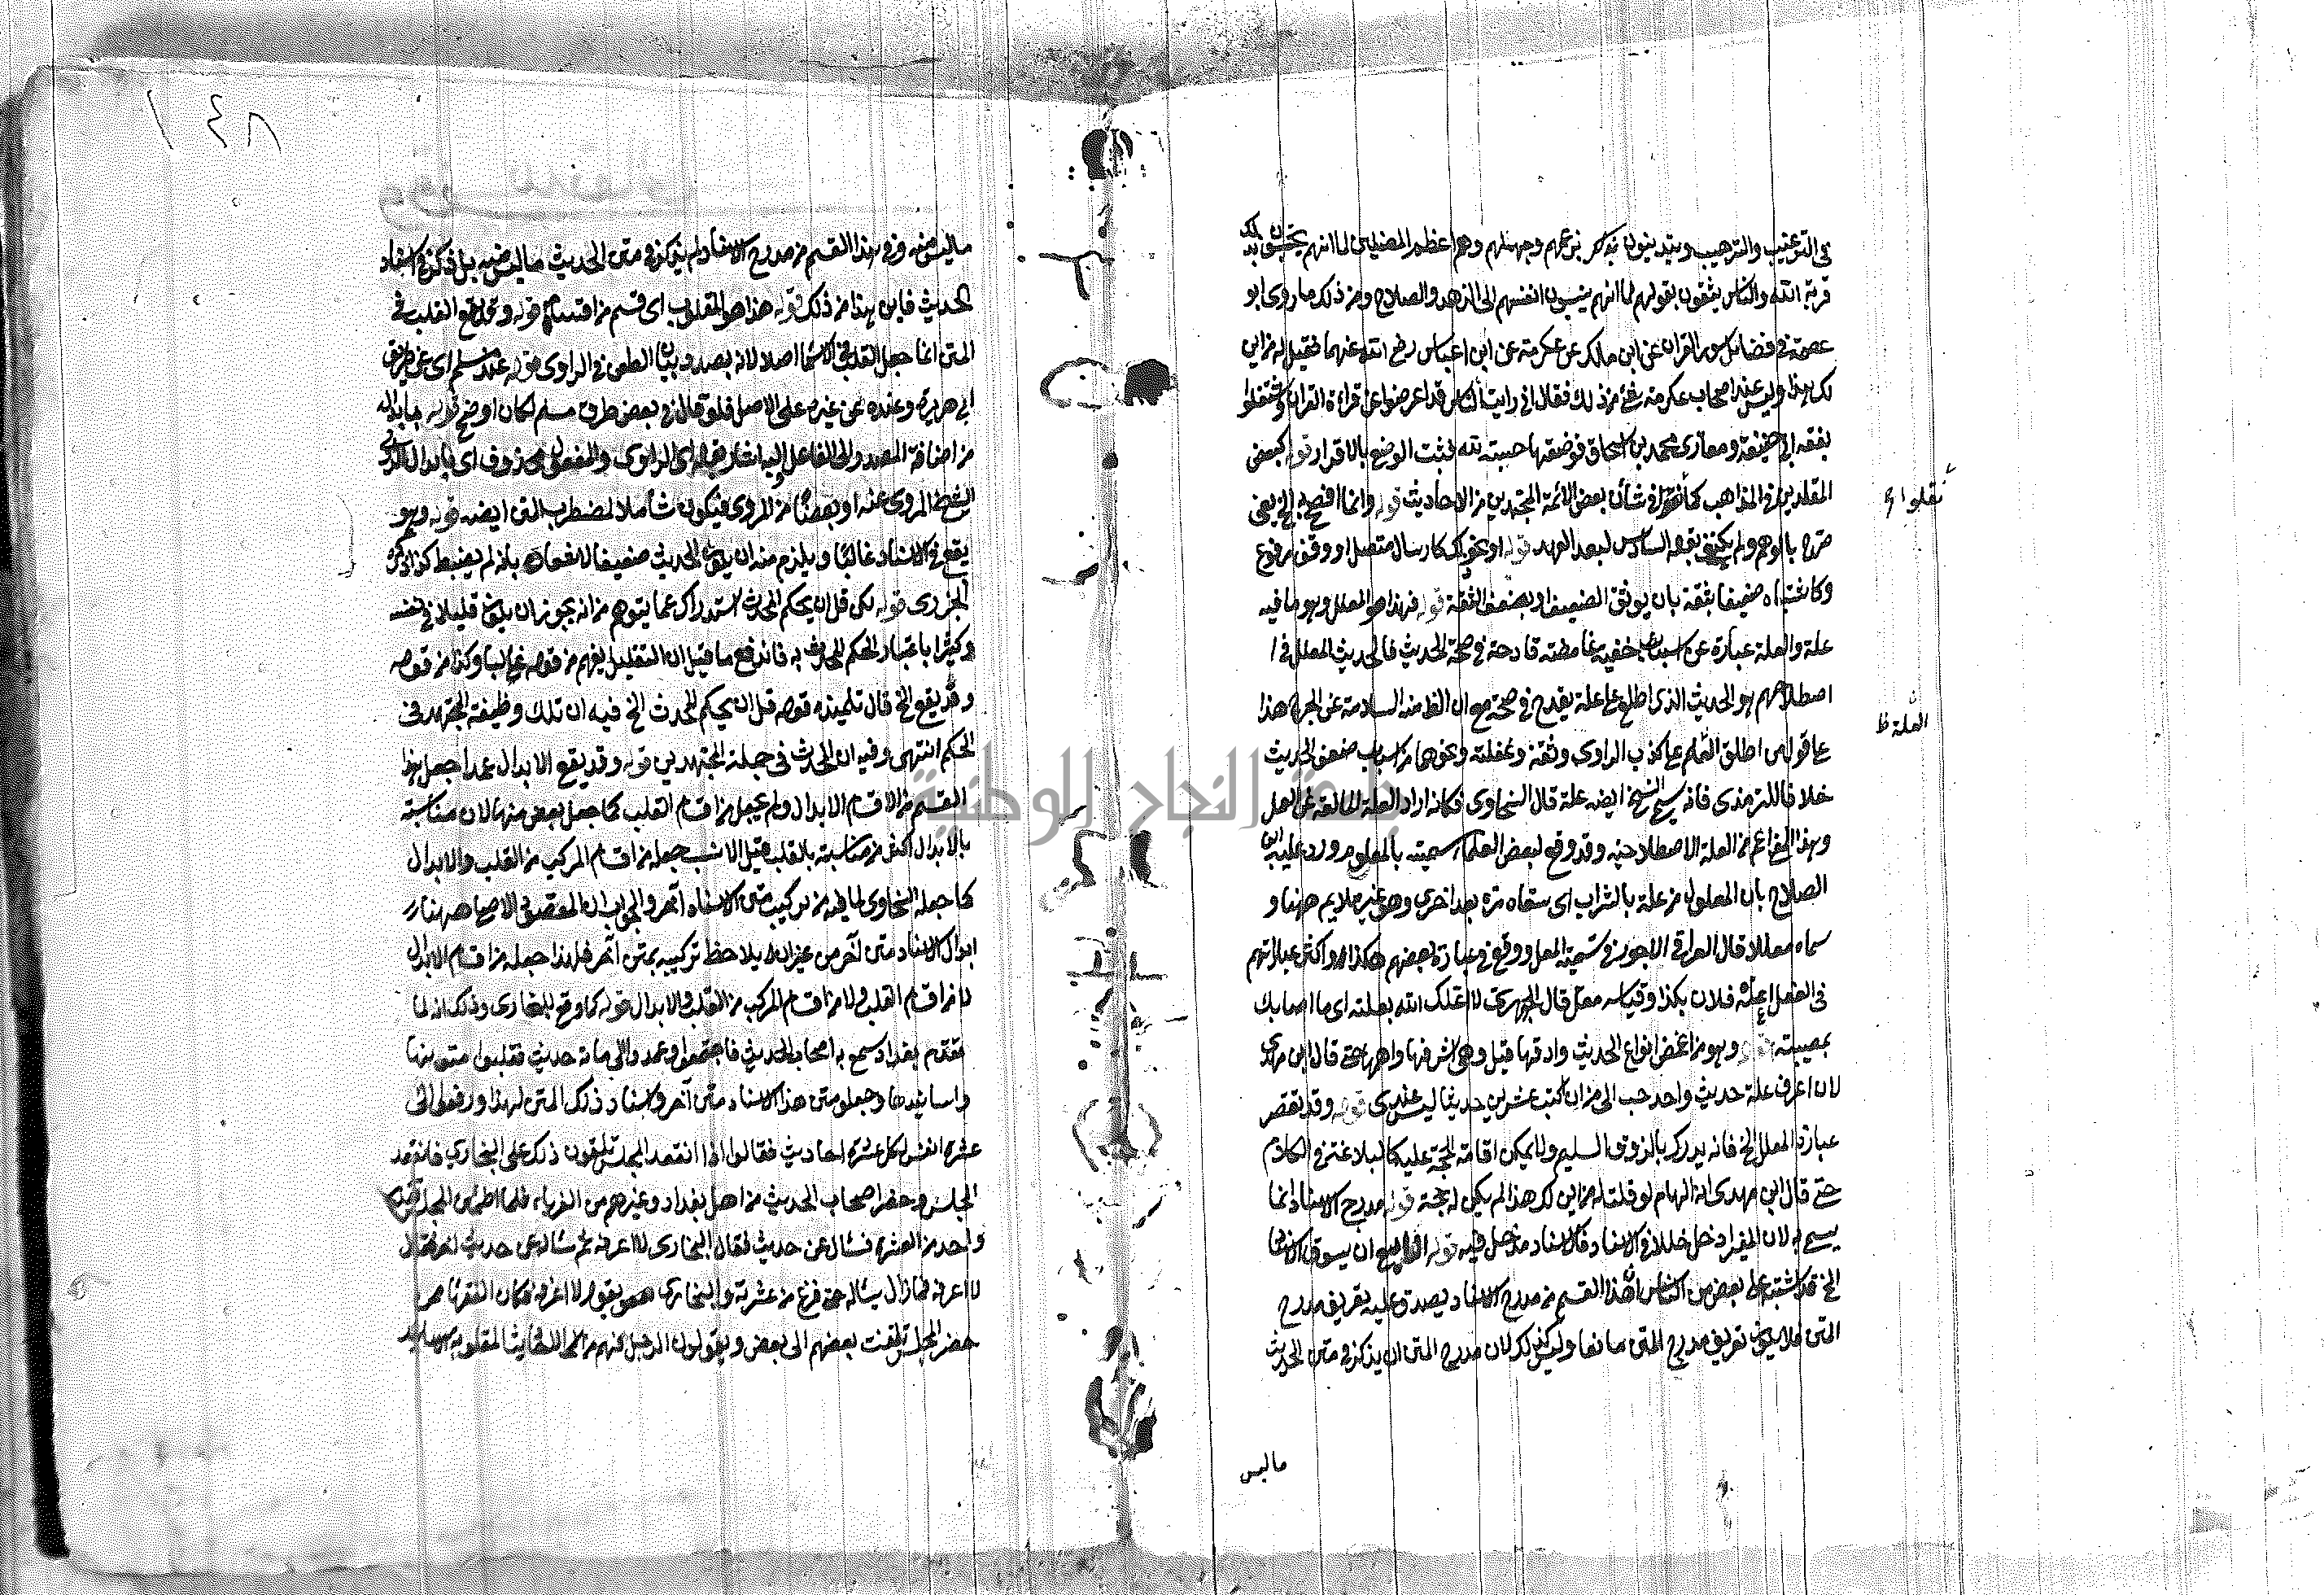 في الترغيب والترهيب ويتدينون بذكر بزعمهم وجهلهم وهم اعظم المضلين لما انهم يحتسبون بذلك
قربة الله والناس يثقون بقولهم لما انهم ينسبون انفسهم الى الزهد والصلاح ومن ذلك ما روى ابو
عصمة في فضائل سور القران عن ابن مالك عن عكرمة عن ابن عباس رضي الله عنهما فقيل له من اين
لك هذا وليس عند اصحاب عكرمة شيء من ذلك فقال اني رايت الناس قد اعرضوا عن قراءة القران واشتغلوا
بفقه ابي حنيفة ومغازي محمد بن اسحاق فوضعتها حسبة لله فثبت الوضع بالاقرار قوله كبعض
المقلدين في المذاهب كما في شأن بعض الائمة المجتهدين من الاحاديث قوله وانما افصح به الخ يعني
صرح بالوهم ولم يكتف بقوله السادس لبعد العهد قوله او نحو ذلك كارسال متصل او وقف مرفوع
وكاشتباه ضعيف بثقة بان يوثق الضعيف او يضعف الثقة قوله فهذا هو المعلل وهو ما فيه
علة والعلة عبارة عن اسباب خفية غامضة قادحة في صحة الحديث فالحديث المعلل في
اصطلاحهم هو الحديث الذي اطلع على علة يقدح في صحته مع ان الظاهر السلامة عن الجرح هذا
على قولهم اطلق العلم على كذب الراوي وثقة وغفلته ونحوهما من اسباب ضعف الحديث
خلافا للترمذي فانه يسمى النسخ ايضا علة قال السخاوي فكانه اراد العلة المانعة عن العمل
وهذا المعنى اعم من العلة الاصطلاحية وقد وقع لبعض العلماء تسميته بالمعلول ورد عليه ابن
الصلاح بان المعلول من علة بالشراب اي سقاه مرة بعد اخرى وهو غير ملايم ههنا و
سماه معللا قال العراقي الاجود في تسميته المعل ووقع في عبارة بعضهم هكذا واكثر عباراتهم
في الفعل اعله فلان بكذا وقياسه معل قال الجوهري لا اعلك الله بعلة اي ما اصابك
بمصيبة قوله وهو من اغمض انواع الحديث وادقها قيل وهي اشرفها واهمها حتى قال ابن مهدي
لان اعرف علة حديث واحد حب الى من ان اكتب عشرين حديثا ليس عندي قوله وقد تقصر
عبارة المعلل الخ فانه يدرك بالذوق السليم ولا يمكن اقامة الحجة عليه كالبلاغة في الكلام
حتى قال ابن مهدي انه الهام لو قلت له من اين لك هذا لم يكن له حجة قوله مدرج الاسناد انما
يسمى به لان المغير ادخل خللا في الاسناد فالاسناد مدخل فيه قوله الرابع ان يسوق الاسناد
الخ قد اشتبه على بعض من الناس ان هذا القسم من مدرج الاسناد يصدق عليه تعريف مدرج
المتن فلا يكون تعريف مدرج المتن مانعا وليس كذلك لان مدرج المتن ان يذكر في متن الحديث
ما ليس
العلة ظ
١٤٨
ما ليس منه وفي هذا القسم من مدرج الاسناد لم يذكر في متن الحديث ما ليس منه بل ذكر في اسناد
الحديث فاين هذا من ذلك قوله هذا هو المقلوب اي قسم من اقسامه قوله وقد يقع القلب في
المتن انما جعل القلب في الاسماء اصلا لانه بصدد بيان الطعن في الراوي قوله عند مسلم اي عن طريق
ابي هريرة وعنده عن غيره على الاصل فلو قال في بعض طرق مسلم لكان اوضح قوله بابداله
من اضافة المصدر الى الفاعل واليه اشار بقوله اي الراوي والمفعول محذوف اي بابدال الراوي
الشيخ المروي عنه او بعضا من المروي فيكون شاملا لمضطرب المتن ايضا قوله وهو
يقع في الاسناد غالبا ويلزم منه ان يكون الحديث ضعيفا لاشعاره بانه لم يضبط كذا ذكره
الجزري قوله لكن قل ان يحكم المحدث استدراك عما يتوهم من انه يجوز ان يكون قليلا في نفسه
وكثيرا باعتبار الحكم المحدث به فاندفع ما قيل ان التقليل يفهم من قوله غالبا وكذا من قوله
وقد يقع الخ قال تلميذه قوله قل ان يحكم المحدث الخ فيه ان تلك وظيفة المجتهد في
الحكم انتهى وفيه ان المحدث في جملة المجتهدين قوله وقد يقع الابدال عمدا جعل هذا
القسم من الاقسام الابدال ولم يجعل من اقسام القلب كما جعل بعض منها لان مناسبته
بالابدال اكثر من مناسبته بالقلب قيل الانسب جعله من اقسام المركب من القلب والابدال
كما جعله السخاوي لما فيه من تركيب متن الاسناد آخر والجواب ان المقصود الاصلي ههنا
ابدال الاسناد متن آخر من غير ان يلاحظ تركيبه بمتن آخر فلهذا جعله من اقسام الابدال
لا من اقسام القلب ولا من اقسام المركب من القلب والابدال قوله كما وقع للبخاري وذلك انه لما
تقدم بغداد سمع به اصحاب الحديث فاجتمعوا وعمدوا الى مائة حديث فقلبوا متونها
واسانيدها وجعلوا متن هذا الاسناد متن آخر واسناد ذلك المتن لهذا ودفعوا الى
عشرة انفس لكل عشرة احاديث فقالوا اذا انعقد المجلس تلقون ذلك على البخاري فانعقد
المجلس وحضر اصحاب الحديث من اهل بغداد وغيرهم من الغرباء فلما اطمئن المجلس تقدم
واحد من العشرة فسئال عن حديث فقال البخاري لا اعرفه ثم سئاله عن حديث اخر فقال
لا اعرفه فما زال يسئاله حتى فرغ من عشرته والبخاري يقول لا اعرفه فكان الفقهاء من
حضر المجلس تلتفت بعضهم الى بعض ويقولون الرجل فهم من الاحاديث المقلوبة